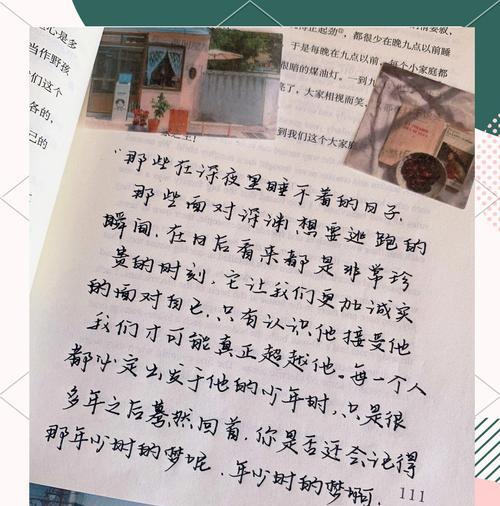 心是多
当作野孩
们这个
各的，
己的
，都很少在晚九点以前睡
于是每晚在九点以前，每个小家庭都
很暗的煤油灯。一到九
亮了，大家相视而笑，
到我们这个大家庭
“那些在深夜里睡不着的日子，
那些面对深渊想要逃跑的
瞬间，在日后看来都是非常珍
贵的时刻，它让我们更加诚实
的面对自己，只有认识他接受他
我们才可能真正超越他。每一个人
都必定出发于他的少年时，只是很
多年之后蓦然回首，你是否还会记得
那年少时的梦呢，年少时的梦啊，
111